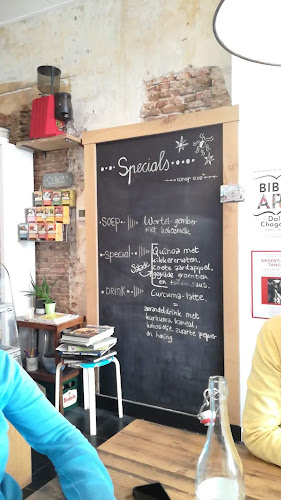 Specials
vanaf 12.00
SOEP
Wortel-gember
met kokosmelk
Special
Salade
Quinoa met
kikkererwten,
zoete aardappel,
gegrilde groenten
en saus
DRINK
Curcuma-latte,
=
amandeldrink met
kurkuma, kaneel,
kokosolie, zwarte peper
en honing
BIB
AR
Dal
Chaga
ARGENTI
TANG